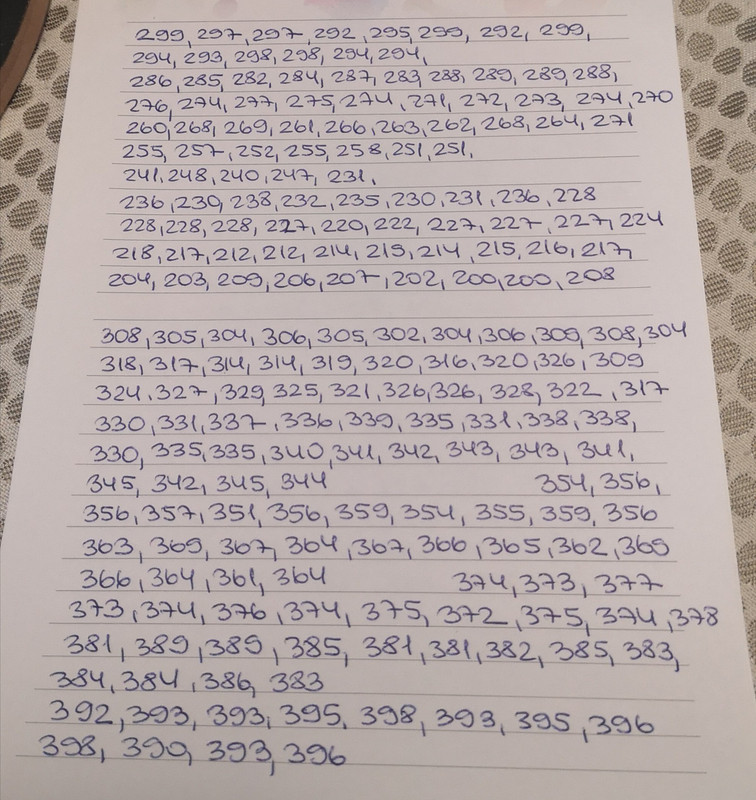 299, 297, 297, 292, 295, 299, 292, 299,
294, 293, 298, 298, 294, 294,
286, 285, 282, 284, 287, 283, 288, 289, 289, 288,
276, 274, 277, 275, 274, 271, 272, 273, 274, 270
260, 268, 269, 261, 266, 263, 262, 268, 264, 271
255, 257, 252, 255, 258, 251, 251,
241, 248, 240, 247, 231,
236, 239, 238, 232, 235, 230, 231, 236, 228
228, 228, 228, 227, 220, 222, 227, 227, 227, 224
218, 217, 212, 212, 214, 219, 214, 215, 216, 217,
204, 203, 209, 206, 207, 202, 200, 200, 208
308, 305, 304, 306, 305, 302, 304, 306, 309, 308, 304
318, 317, 314, 314, 319, 320, 316, 320, 326, 309
324, 327, 329, 325, 321, 326, 326, 328, 322, 317
330, 331, 337, 336, 339, 335, 331, 338, 338,
330, 335, 335, 340, 341, 342, 343, 343, 341,
345, 342, 345, 344 354, 356,
356, 357, 351, 356, 359, 354, 355, 359, 356
363, 369, 367, 364, 367, 366, 365, 362, 369
366, 364, 361, 364 374, 373, 377
373, 374, 376, 374, 375, 372, 375, 374, 378
381, 389, 389, 385, 381, 381, 382, 385, 383,
384, 384, 386, 383
392, 393, 393, 395, 398, 393, 395, 396
398, 399, 393, 396